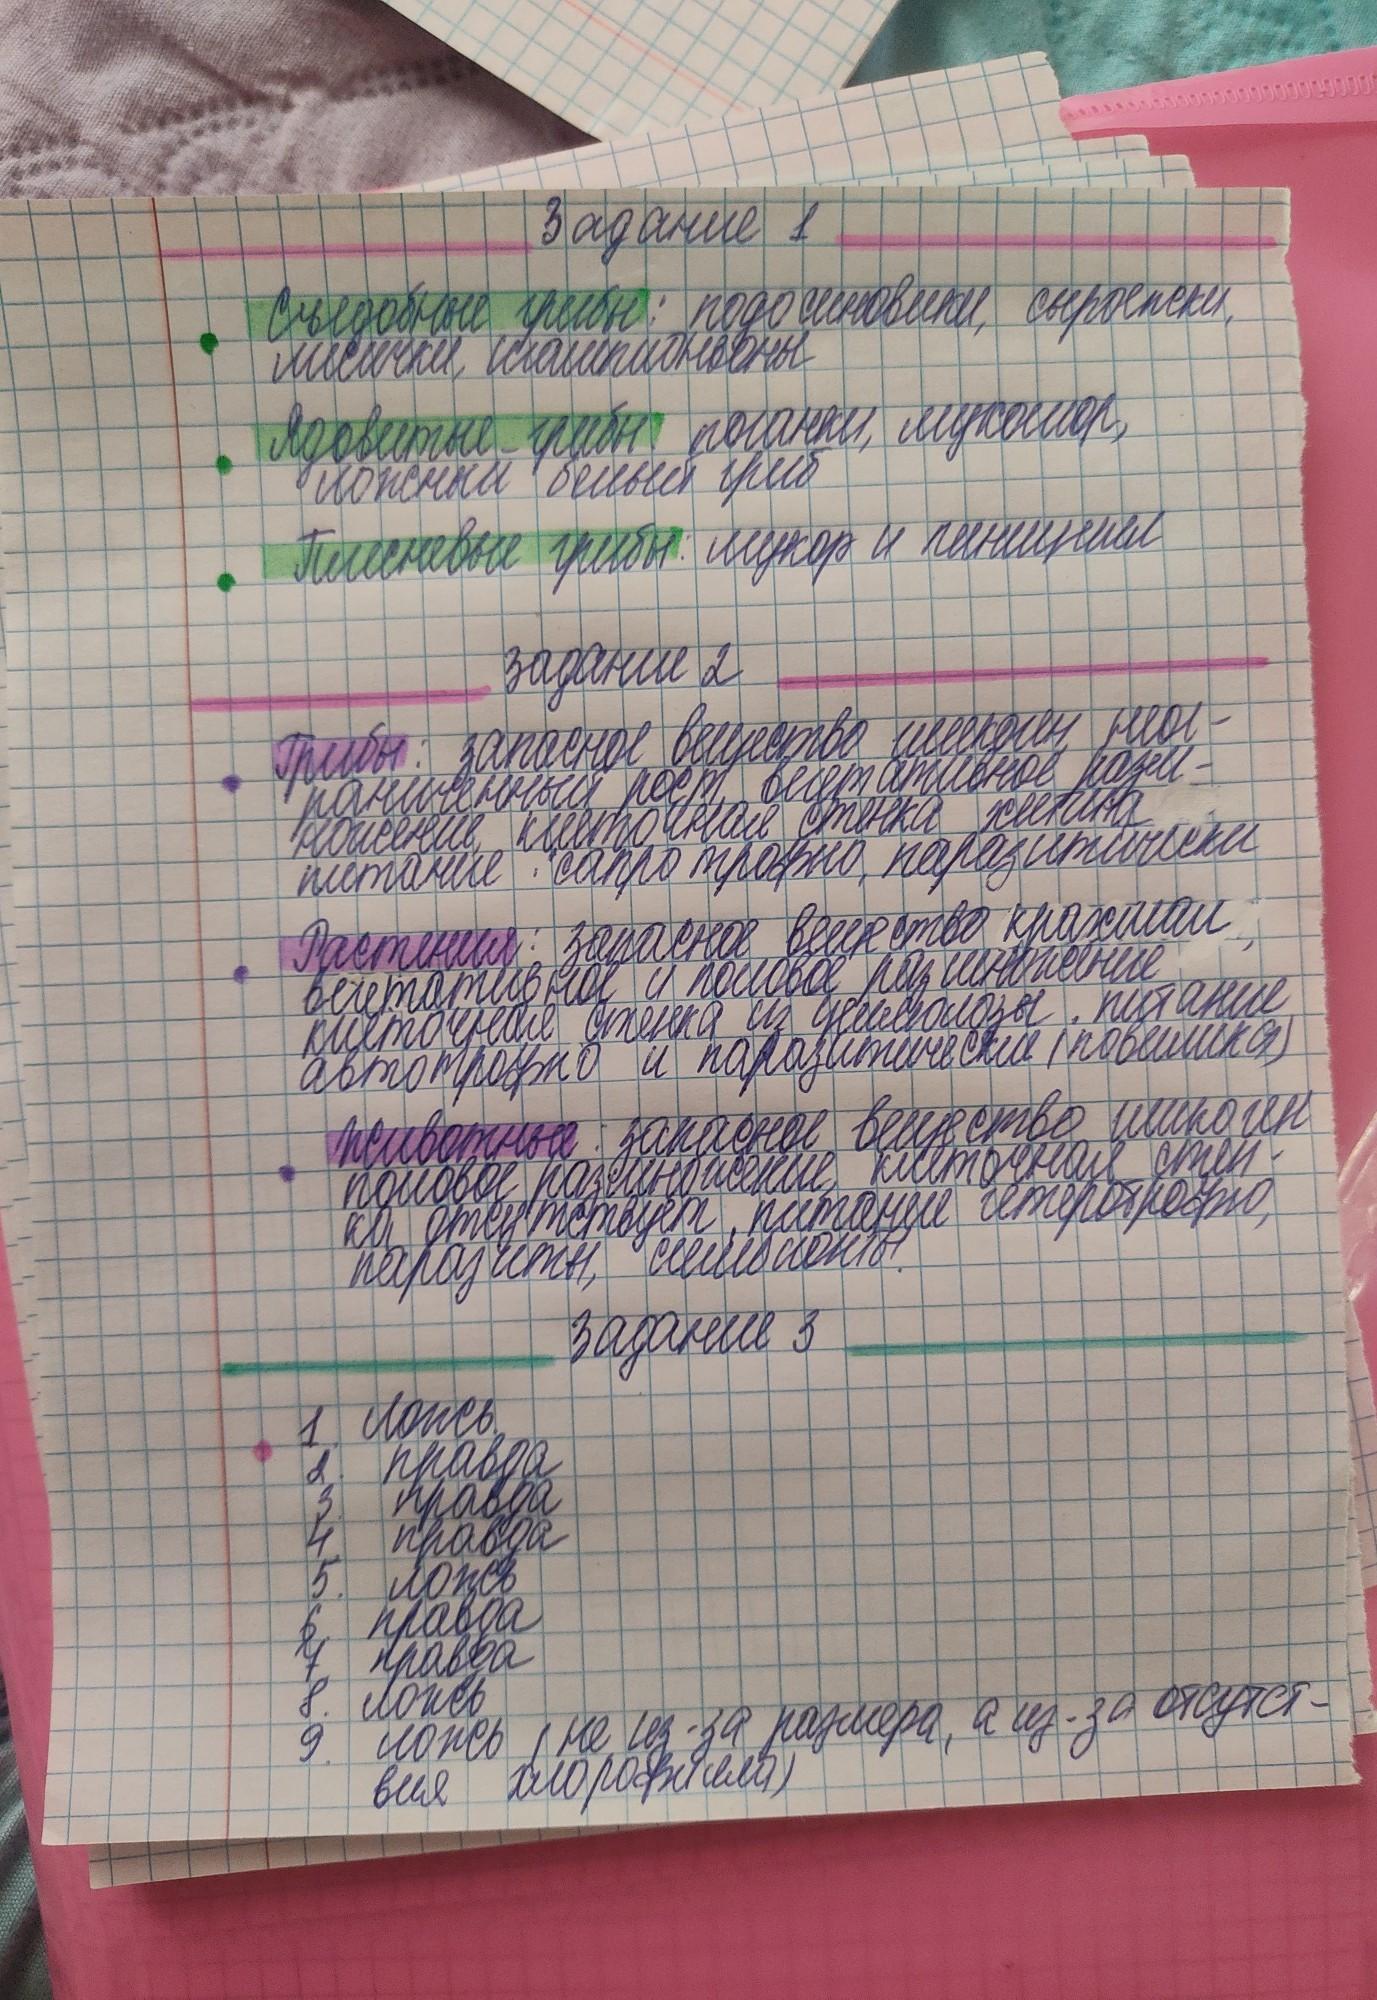 Задание 1
Съедобные грибы: подосиновики, сыроежки,
лисички, шампиньоны
Ядовитые грибы: поганки, мухомор,
ложный белый гриб
Плесневые грибы: мукор и пеницилл
Задание 2
Грибы: запасное вещество гликоген неог-
раниченный рост, вегетативное разм-
ножение, клеточная стенка хитина
питание: сапротрофно, паразитически
Растения: запасное вещество крахмал,
вегетативное и половое размножение
клеточная стенка из целлюлозы. питание
автотрофно и паразитически (повилика)
Животные: запасное вещество гликоген
половое размножение, клеточная стен-
ка отсутствует, питание гетеротрофно,
паразиты, симбионты.
Задание 3
1. Ложь
2. правда
3. правда
4 правда
5. ложь
6 правда
7 правда
8. ложь
9. ложь (не из-за размера, а из-за отсутст-
вия хлорофилла)